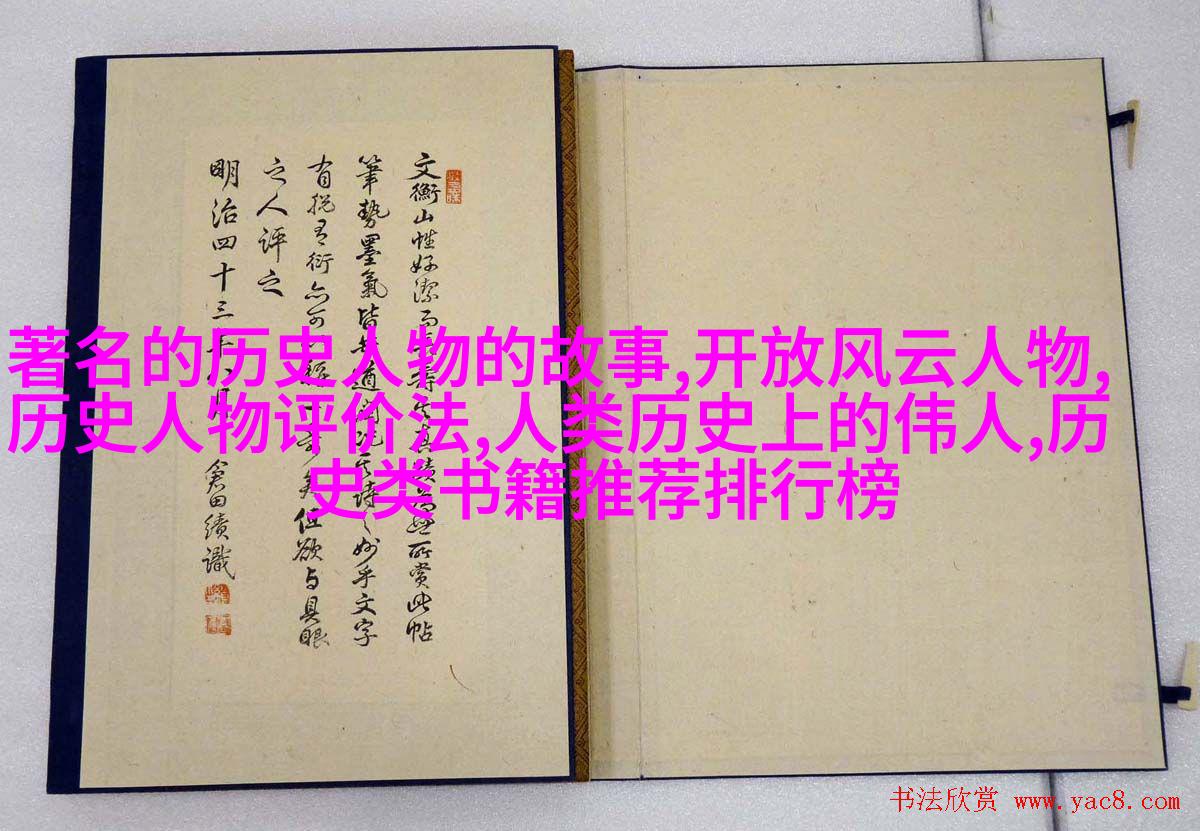 著名的历史人物的故事,开放风云人物,
历史人物评价法,人类历史上的伟人,历
史类书籍推荐排行榜
文衡山性好潔而真蹟所賞此帖
筆勢墨氣皆遒詩之妙乎文字
有衍但欲与具眼
之人評之
明治四十三年八月倉田績識
书法欣赏 www.yac8.com